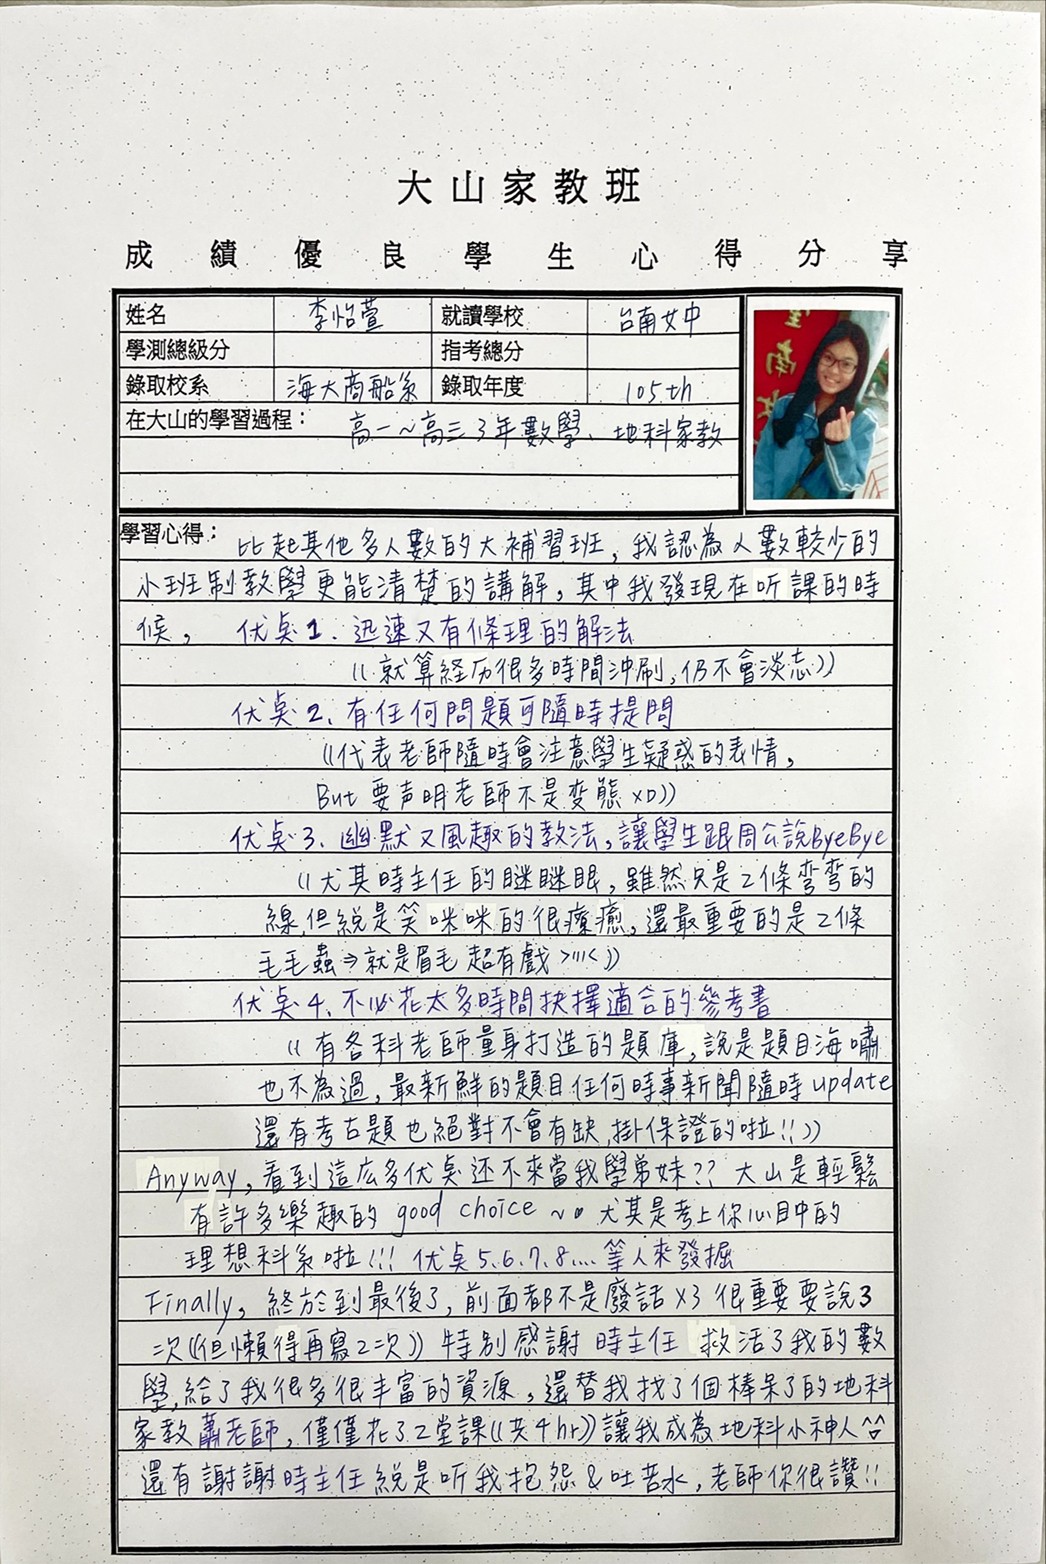 大山家教班
成績優良學生心得分享
姓名 李怡萱 就讀學校 台南女中
學測總級分 指考總分
錄取校系 海大商船系 錄取年度 105th
在大山的學習過程： 高一~高三3年數學、地科家教
學習心得： 比起其他多人數的大補習班，我認為人數較少的
小班制教學更能清楚的講解，其中我發現在听課的時
候， 优点1. 迅速又有條理的解法
((就算経历很多時間沖刷，仍不會淡忘))
优点2. 有任何問題可隨時提問
((代表老師隨時會注意學生疑惑的表情，
But 要声明老師不是变態 XD))
优点3. 幽默又風趣的教法，讓學生跟周公說ByeBye
((尤其時主任的瞇瞇眼，雖然只是2條彎彎的
線，但総是笑咪咪的很療癒，還最重要的是2條
毛毛蟲⇒就是眉毛超有戲>///<))
优点4. 不必花太多時間抉擇適合的參考書
((有各科老師量身打造的題庫，說是題目海嘯
也不為過，最新鮮的題目任何時事新聞隨時update
還有考古題也絕對不會有缺，掛保證的啦!!))
Anyway，看到這広多优点还不來當我學弟妹?? 大山是輕鬆
有許多樂趣的 good choice ~。尤其是考上你心目中的
理想科系啦!!! 优点5.6.7.8....等人來發掘
Finally，終於到最後了，前面都不是廢話X3 很重要要說3
次((但懶得再寫2次)) 特別感謝 時主任 救活了我的數
學，給了我很多很丰富的資源，還替我找了個棒呆了的地科
家教蕭老師，僅僅花了2堂課((共4hr))讓我成為地科小神人^^
還有謝謝時主任総是听我抱怨&吐苦水，老師你很讚!!